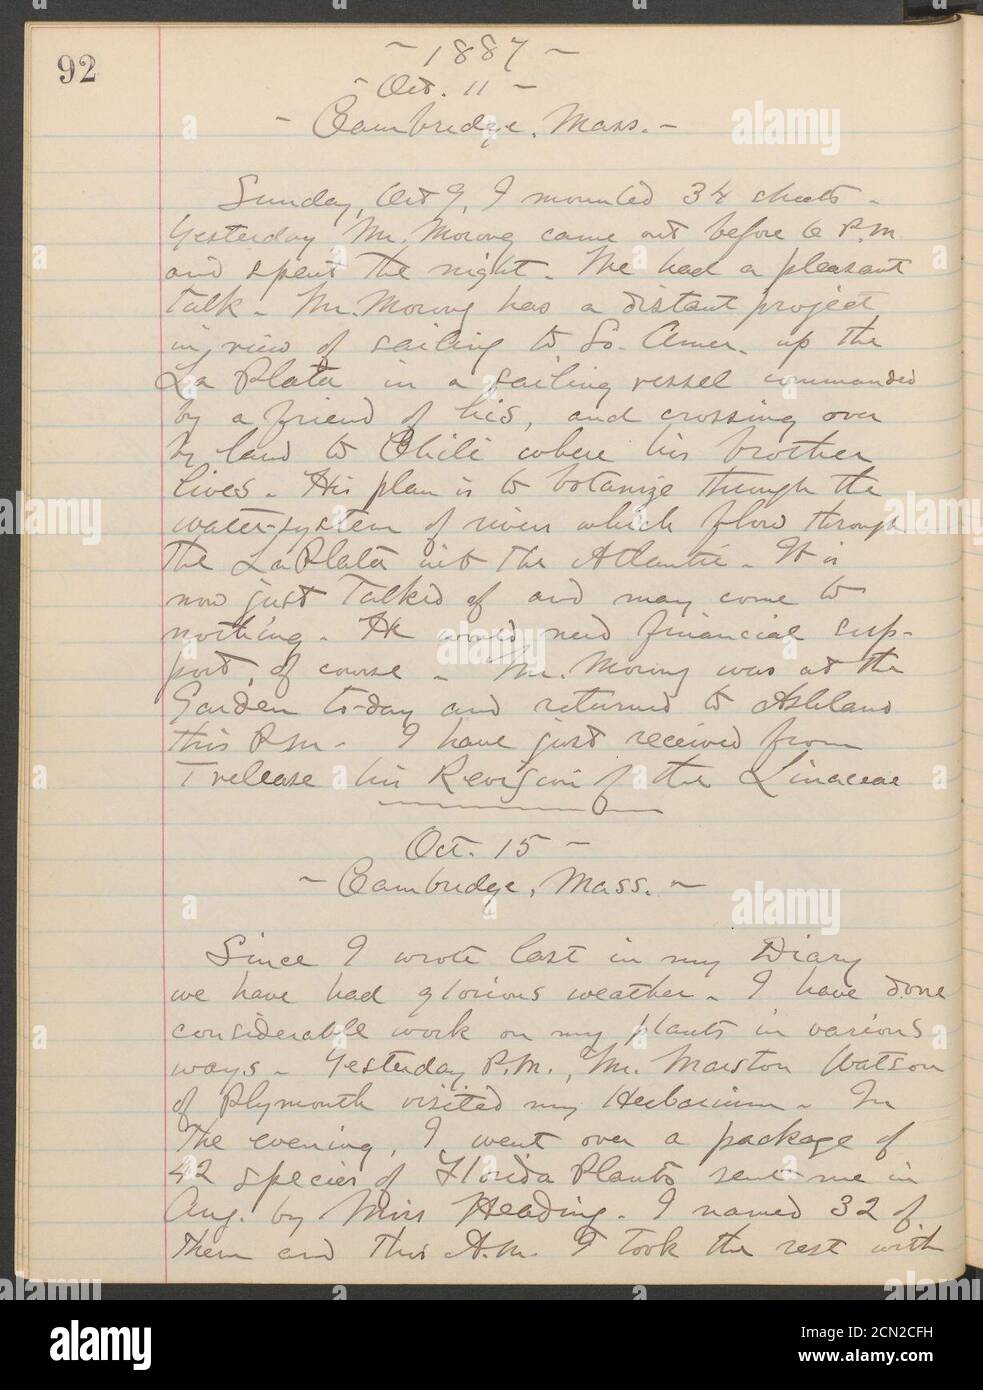 92
~ 1887 ~
- Oct. 11 -
- Cambridge, Mass. -
Sunday, Oct 9, I mounted 34 sheets -
Yesterday Mr. Morong came out before 6 P.M.
and spent the night. We had a pleasant
talk - Mr. Morong has a distant project
in view of sailing to So. Amer. up the
La Plata in a sailing vessel commanded
by a friend of his, and crossing over
by land to Chili where his brother
lives - His plan is to botanize through the
water-system of rivers which flow through
the La Plata into the Atlantic - It is
now just talked of and may come to
nothing. He would need financial sup-
port, of course - Mr. Morong was at the
Garden to-day and returned to Ashland
this P.M. - I have just received from
Trelease his Revision of the Linaceae
Oct. 15 -
~ Cambridge, Mass. ~
Since I wrote last in my Diary
we have had glorious weather - I have done
considerable work on my plants in various
ways - Yesterday P.M., Mr. Marston Watson
of Plymouth visited my Herbarium - In
the evening, I went over a package of
42 species of Florida Plants sent me in
Aug. by Miss Heading - I named 32 of
them and this A.M. I took the rest with
alamy
Image ID: 2CN2CFH
www.alamy.com